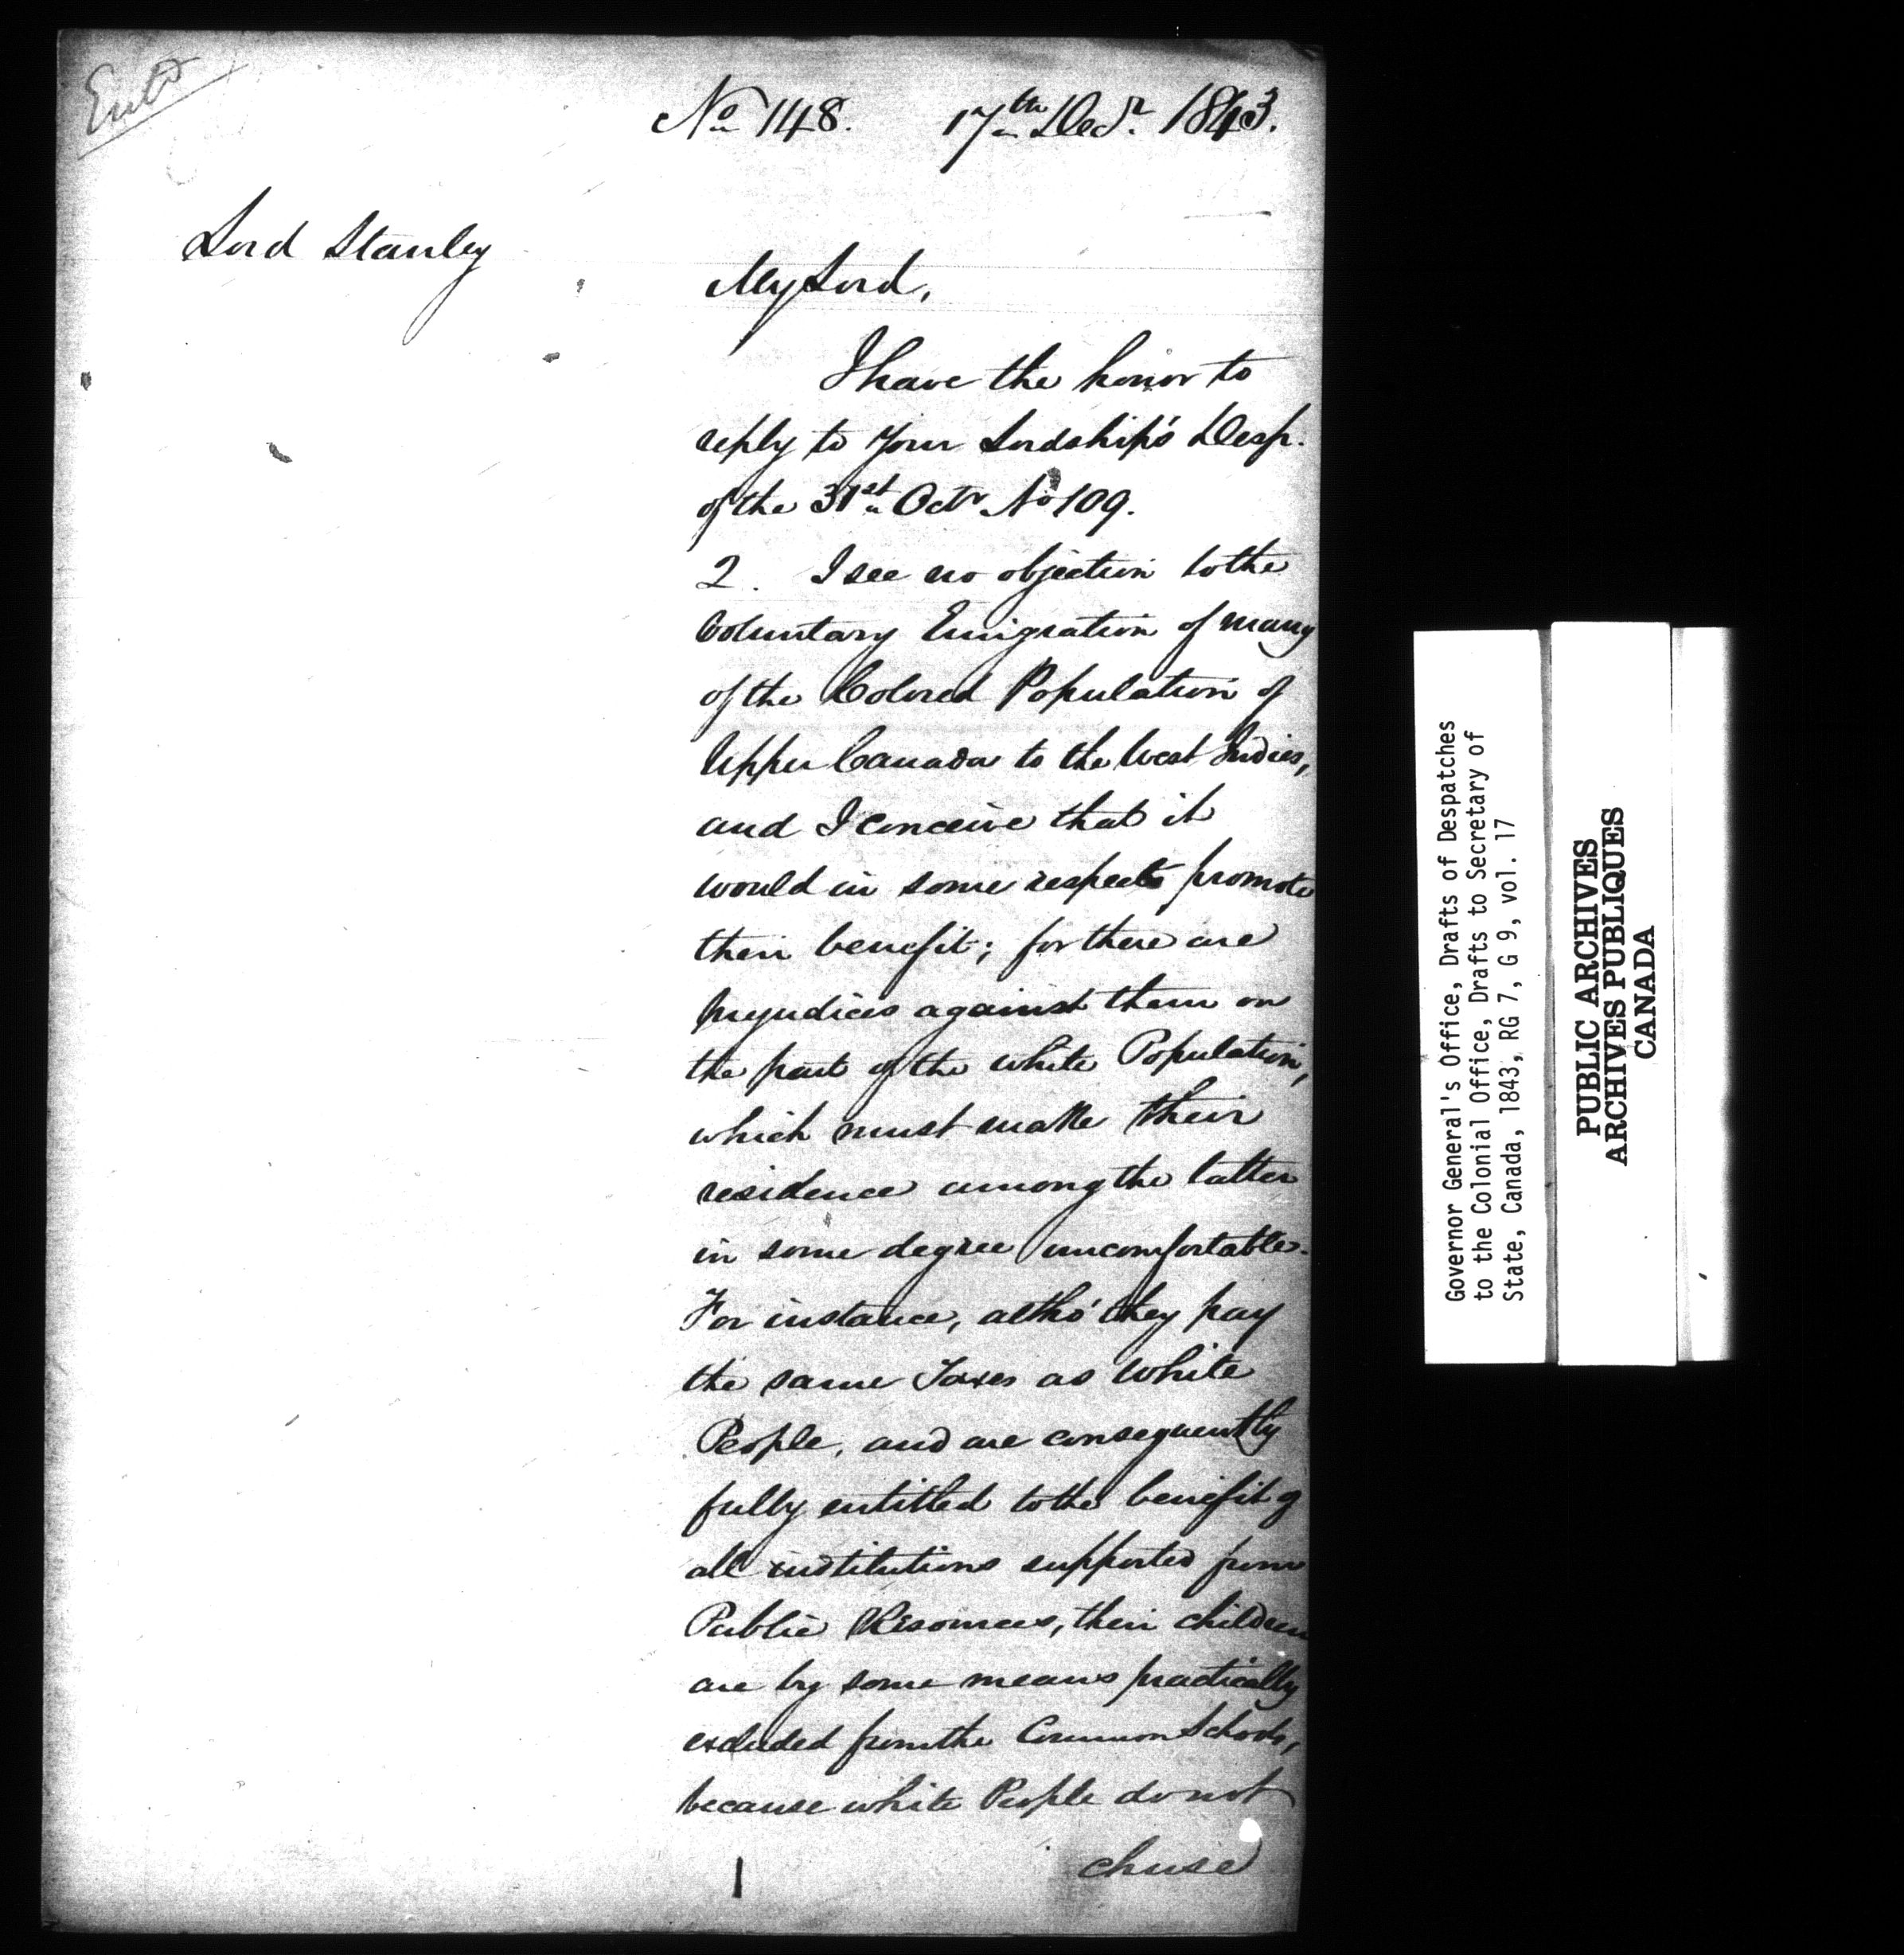 Entd
No 148. 17th Decr. 1843.
Lord Stanley
My Lord,
I have the honor to
reply to Your Lordship's Desp.
of the 31st Octr No 109.
2. I see no objection to the
Voluntary Emigration of many
of the Colored Population of
Upper Canada to the West Indies,
and I conceive that it
would in some respects promote
their benefit; for there are
prejudices against them on
the part of the white Population,
which must make their
residence among the latter
in some degree uncomfortable.
For instance, altho' they pay
the same Taxes as White
People, and are consequently
fully entitled to the benefit of
all institutions supported from
Public Resources, their children
are by some means practically
excluded from the Common Schools,
because white People do not
chuse
1
Governor General's Office, Drafts of Despatches
to the Colonial Office, Drafts to Secretary of
State, Canada, 1843, RG 7, G 9, vol. 17
PUBLIC ARCHIVES
ARCHIVES PUBLIQUES
CANADA